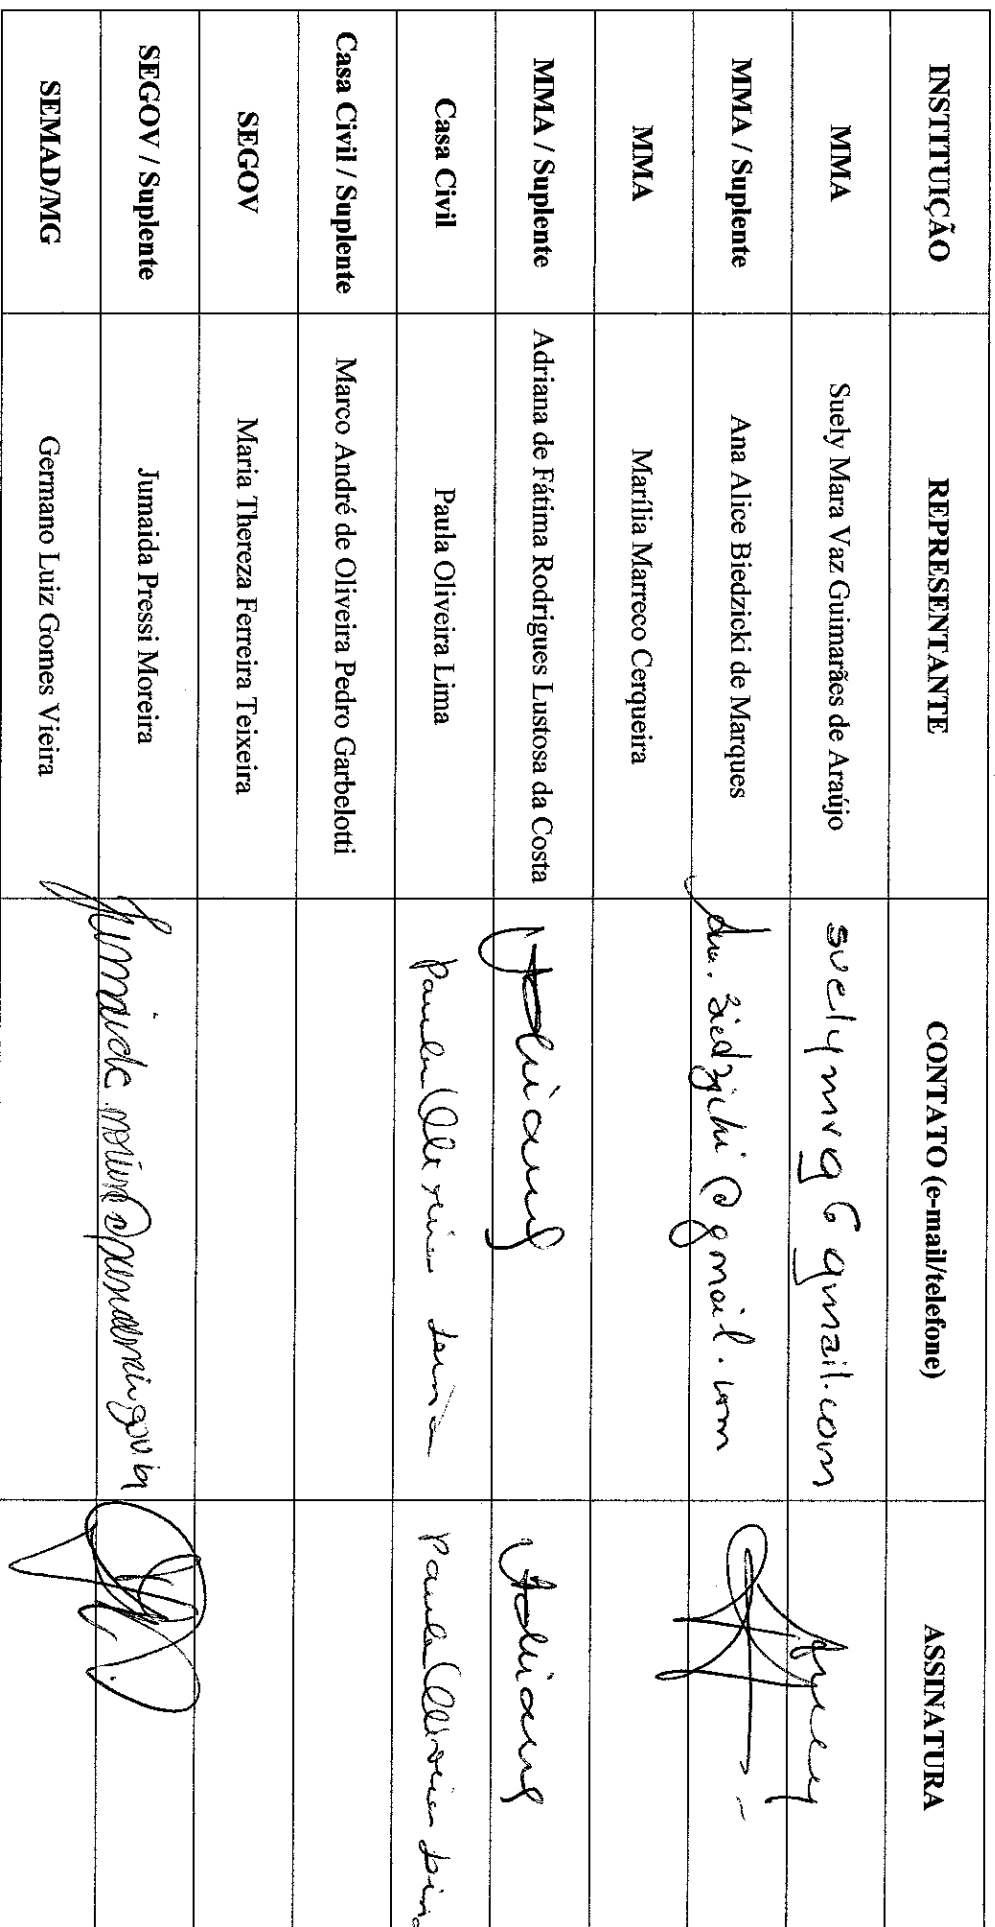 INSTITUIÇÃO REPRESENTANTE CONTATO (e-mail/telefone) ASSINATURA
MMA Suely Mara Vaz Guimarães de Araújo suelymvg@gmail.com Suely
MMA / Suplente Ana Alice Biedzicki de Marques @gmail.com
MMA Marília Marreco Cerqueira
MMA / Suplente Adriana de Fátima Rodrigues Lustosa da Costa Adriana Adriana
Casa Civil Paula Oliveira Lima Paula Oliveira Lima Paula Oliveira Lima
Casa Civil / Suplente Marco André de Oliveira Pedro Garbelotti
SEGOV Maria Thereza Ferreira Teixeira
SEGOV / Suplente Jumaida Pressi Moreira
SEMAD/MG Germano Luiz Gomes Vieira